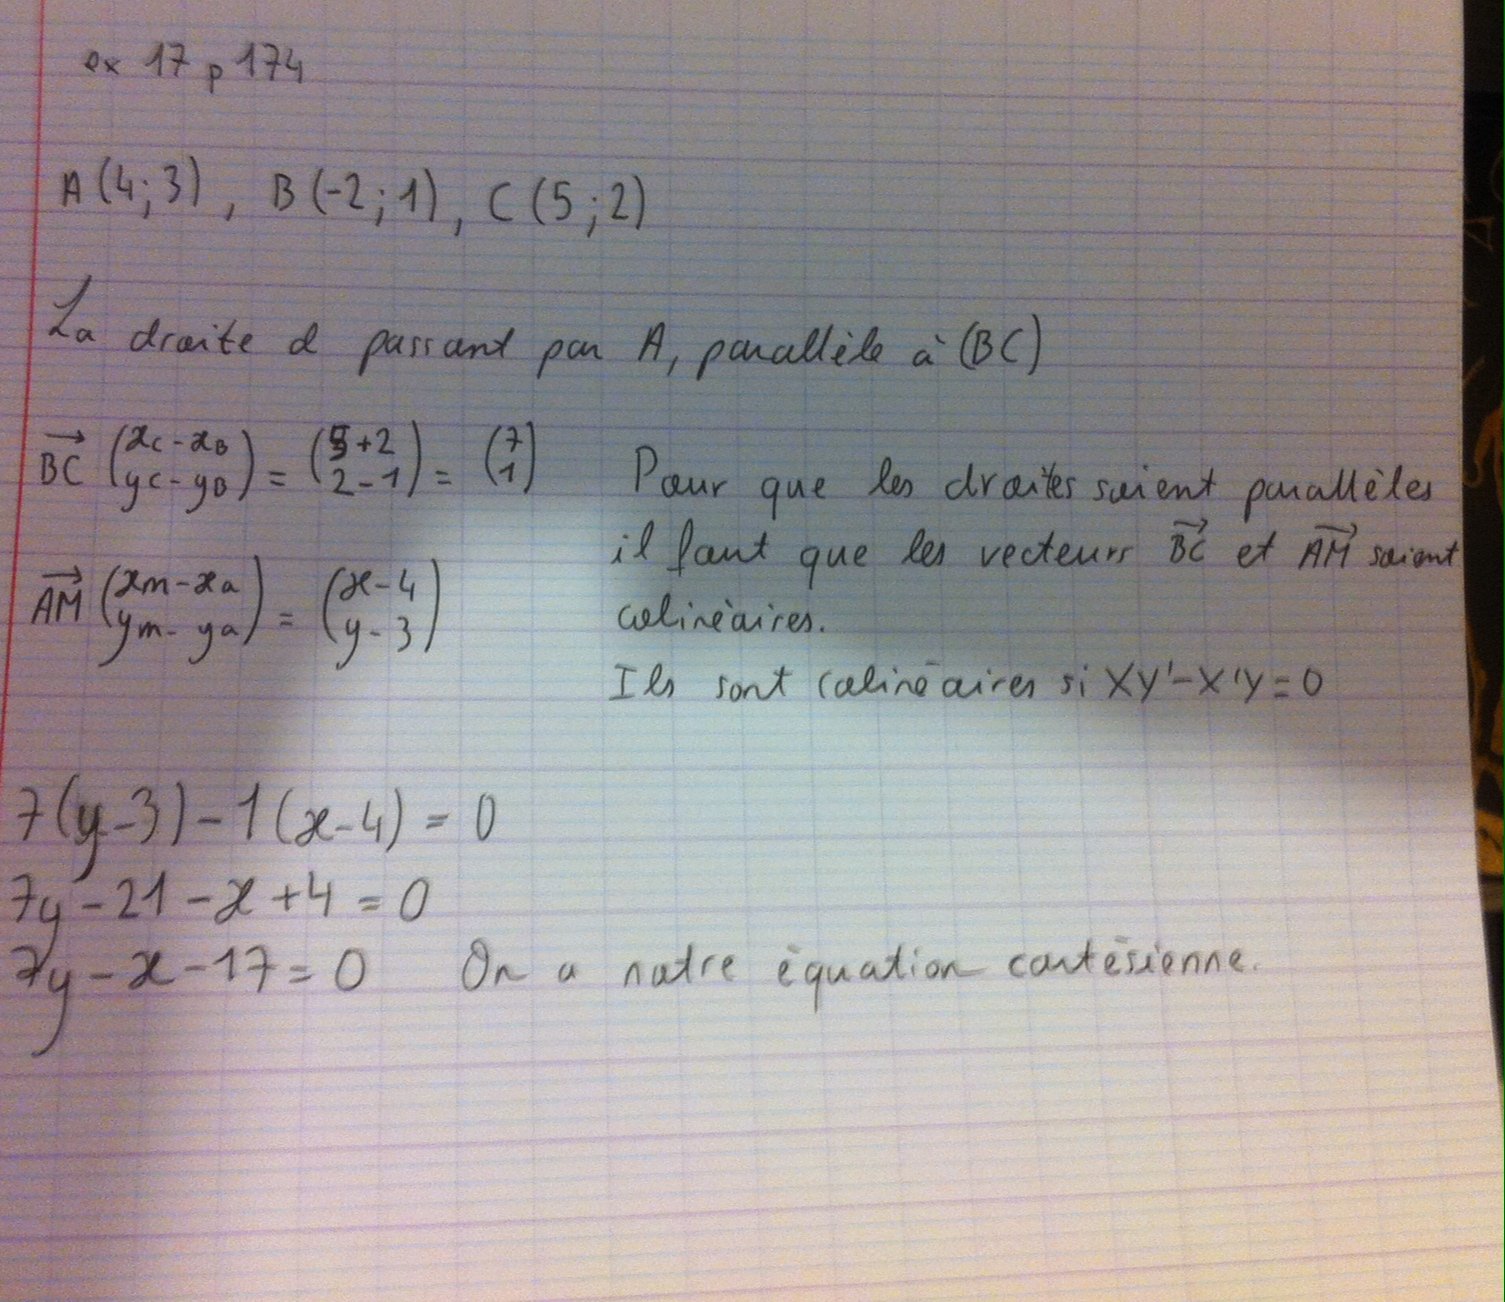 ex 17 p 174
A(4;3), B(-2;1), C(5;2)
La droite d passant par A, parallèle à (BC)
BC→ (xC-xB / yC-yB) = (5+2 / 2-1) = (7 / 1)
Pour que les droites soient parallèles
il faut que les vecteurs BC→ et AM→ soient
colinéaires.
Ils sont colinéaires si XY'-X'Y=0
AM→ (xm-xa / ym-ya) = (x-4 / y-3)
7(y-3)-1(x-4)=0
7y-21-x+4=0
7y-x-17=0 On a notre équation cartésienne.